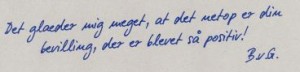 Det glæder mig meget, at det netop er din
bevilling, der er blevet så positiv!
BvG.